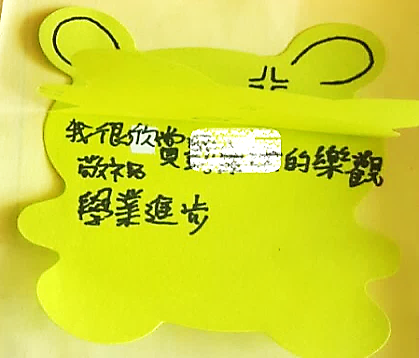 我很欣賞的樂觀
敬祝
學業進步